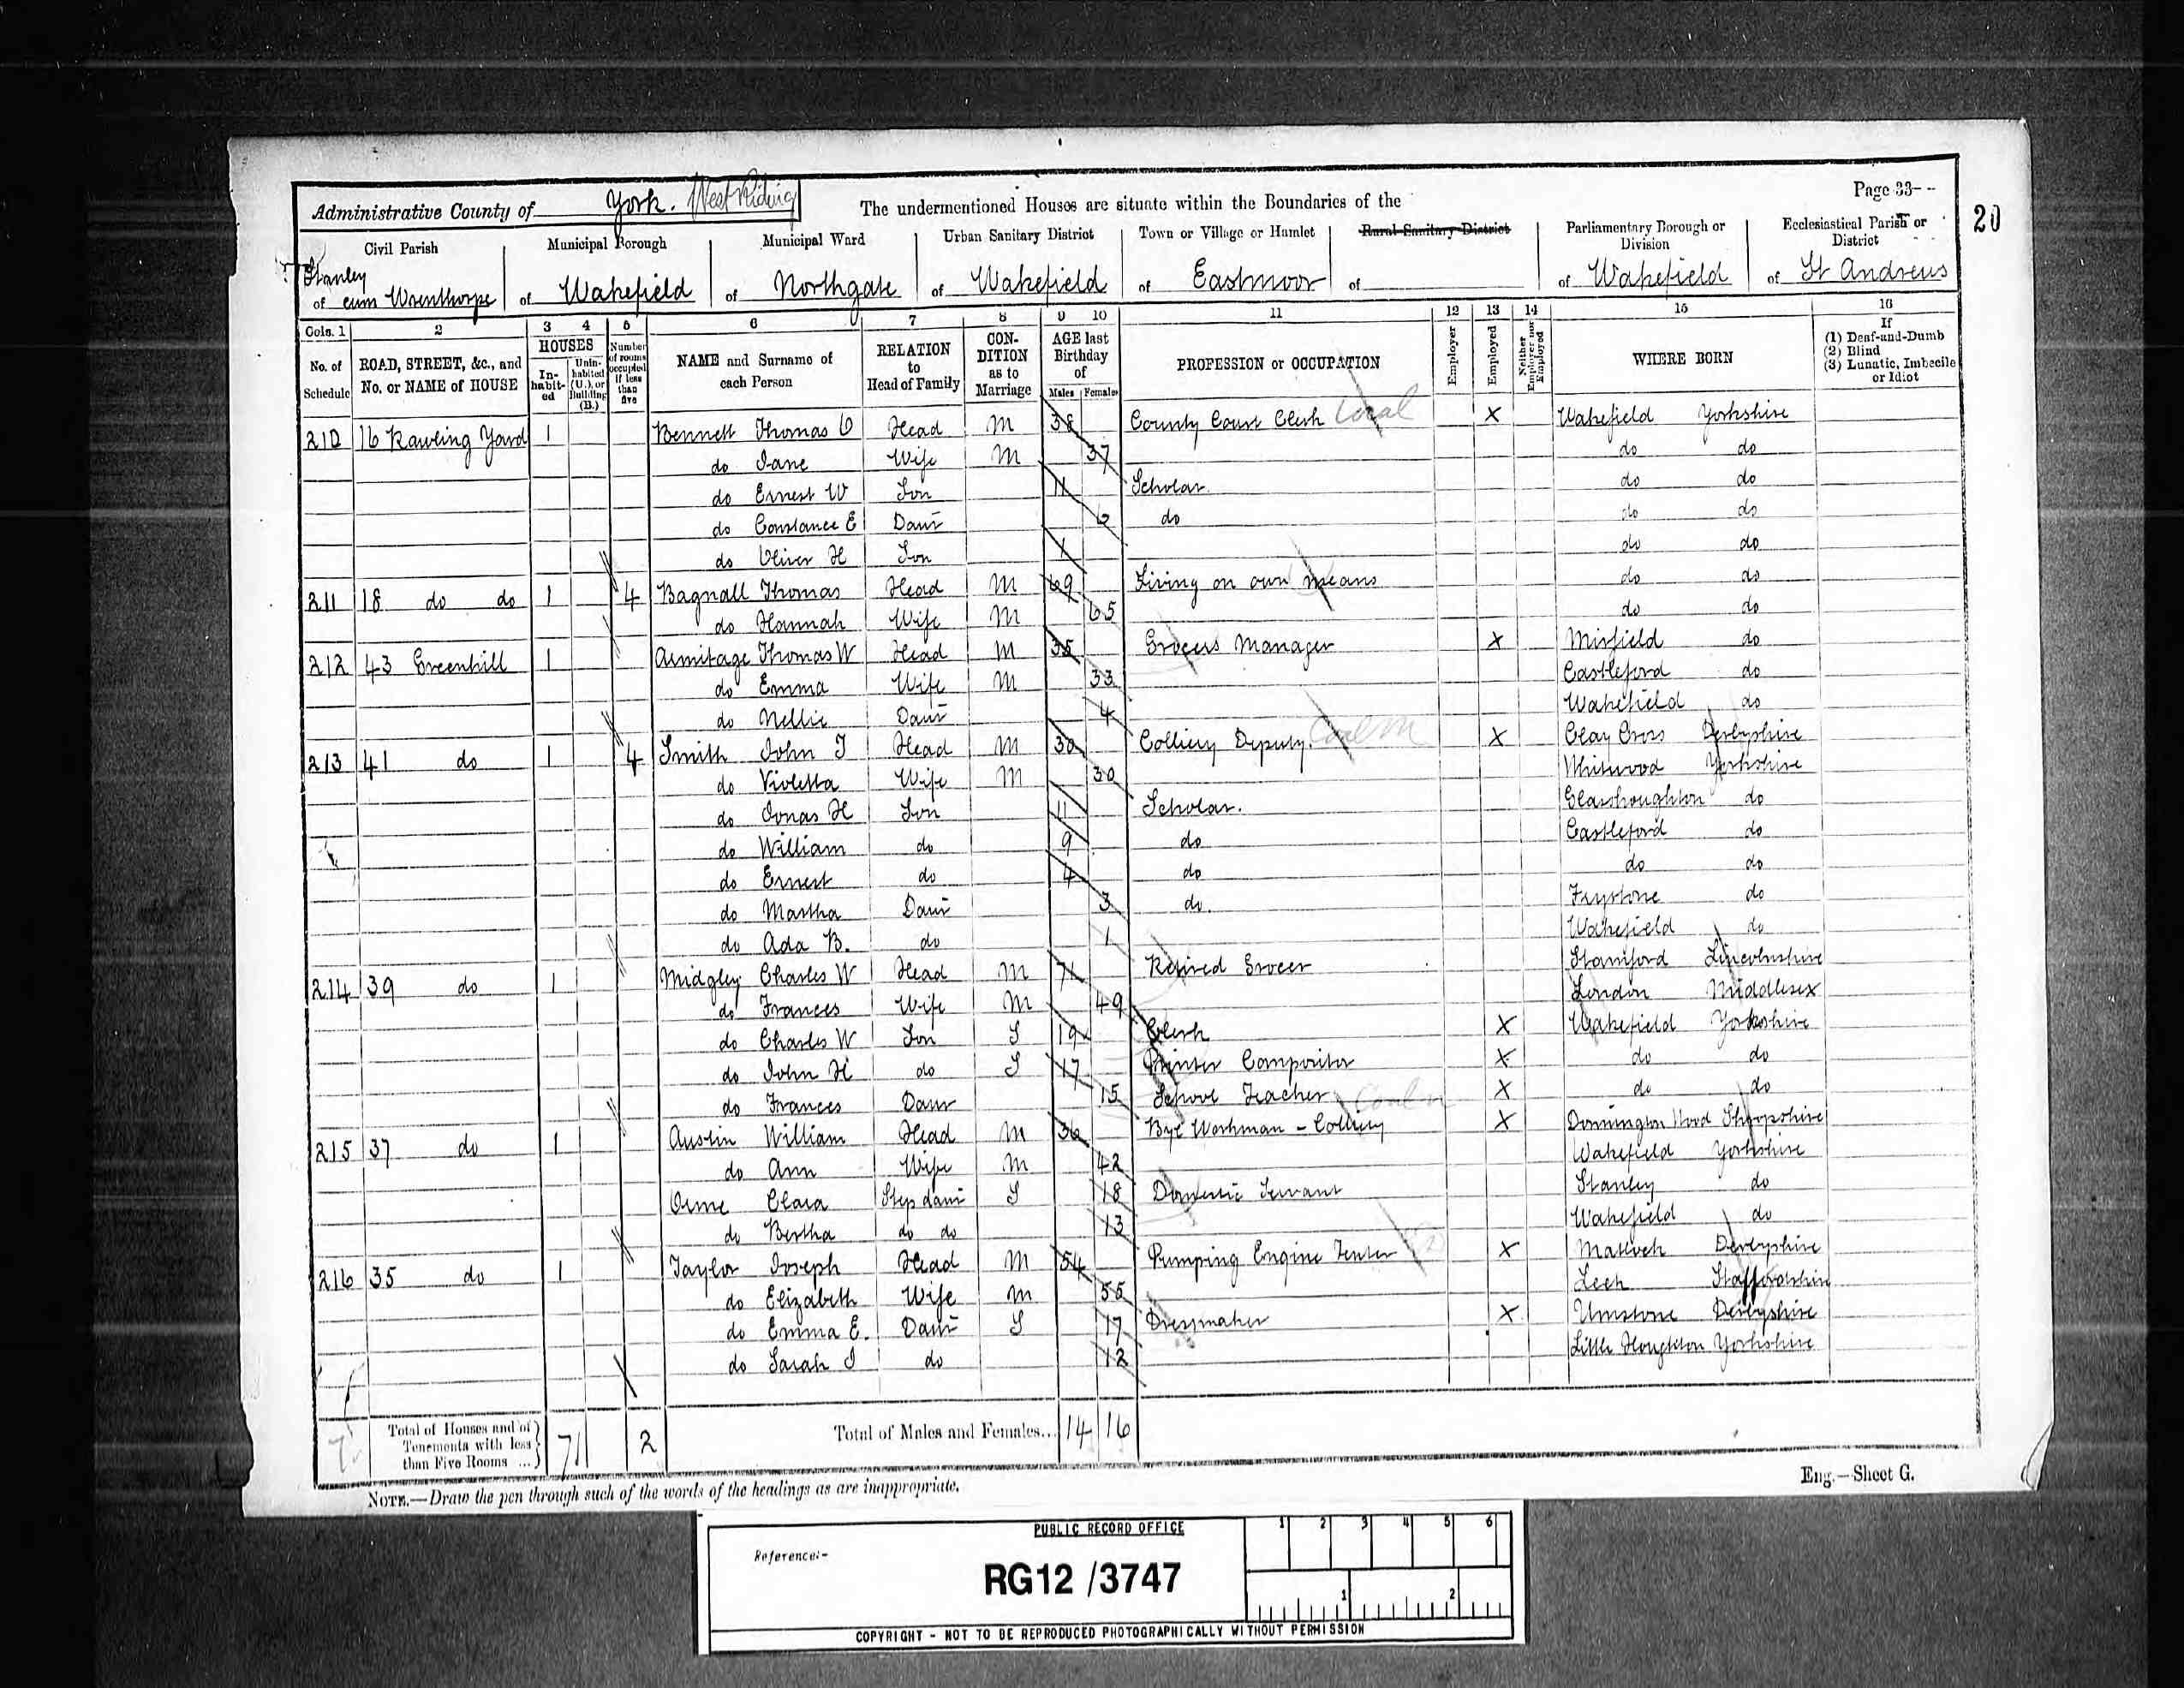 Page 33
20
Administrative County of York. West Riding
The undermentioned Houses are situate within the Boundaries of the
Civil Parish Municipal Borough Municipal Ward Urban Sanitary District Town or Village or Hamlet Rural Sanitary District Parliamentary Borough or Division Ecclesiastical Parish or District
of Stanley cum Wrenthorpe of Wakefield of Northgate of Wakefield of Eastmoor of of Wakefield of St Andrews
Cols. 1 2 3 4 5 6 7 8 9 10 11 12 13 14 15 16
No. of Schedule ROAD, STREET, &c., and No. or NAME of HOUSE HOUSES Inhabited Uninhabited (U.), or Building (B.) Number of rooms occupied if less than five NAME and Surname of each Person RELATION to Head of Family CONDITION as to Marriage AGE last Birthday of Males Females PROFESSION or OCCUPATION Employer Employed Neither Employer nor Employed WHERE BORN If (1) Deaf-and-Dumb (2) Blind (3) Lunatic, Imbecile or Idiot
210 16 Rawling Yard 1 Bennett Thomas O Head M 38 County Court Clerk X Wakefield Yorkshire
do Jane Wife M 37 do do
do Ernest W Son 11 Scholar do do
do Constance E Daur 6 do do do
do Oliver H Son 1 do do
211 18 do do 1 4 Bagnall Thomas Head M 69 Living on own means do do
do Hannah Wife M 65 do do
212 43 Greenhill 1 Armitage Thomas W Head M 35 Grocers Manager X Mirfield do
do Emma Wife M 33 Castleford do
do Nellie Daur 4 Wakefield do
213 41 do 1 4 Smith John T Head M 30 Colliery Deputy. Coal M X Clay Cross Derbyshire
do Violetta Wife M 30 Whitwood Yorkshire
do Jonas H Son 11 Scholar. Glasshoughton do
do William do 9 do Castleford do
do Ernest do 4 do do do
do Martha Daur 3 do. Frystone do
do Ada B. do 1 Wakefield do
214 39 do 1 Midgley Charles W Head M 71 Retired Grocer Stamford Lincolnshire
do Frances Wife M 49 London Middlesex
do Charles W Son S 19 Clerk X Wakefield Yorkshire
do John H do S 17 Printer Compositor X do do
do Frances Daur 15 School Teacher X do do
215 37 do 1 Austin William Head M 36 Bye Workman - Colliery X Donnington Wood Shropshire
do Ann Wife M 42 Wakefield Yorkshire
Orme Clara Step daur S 18 Domestic Servant Stanley do
do Bertha do do 13 Wakefield do
216 35 do 1 Taylor Joseph Head M 54 Pumping Engine Tenter X Matlock Derbyshire
do Elizabeth Wife M 55 Leek Staffordshire
do Emma E. Daur S 17 Dressmaker X Unstone Derbyshire
do Sarah J do 12 Little Houghton Yorkshire
Total of Houses and of Tenements with less than Five Rooms ... 7 2 Total of Males and Females... 14 16
NOTE.—Draw the pen through such of the words of the headings as are inappropriate.
Eng.—Sheet G.
PUBLIC RECORD OFFICE
Reference:-
RG12 /3747
1 2 3 4 5 6
1 2
COPYRIGHT - NOT TO BE REPRODUCED PHOTOGRAPHICALLY WITHOUT PERMISSION